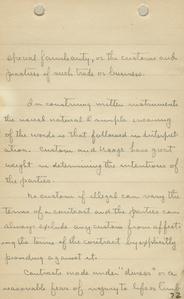 special familiarity, or the customs and
practices of such trade or business.
In construing written instruments
the usual natural & simple meaning
of the words is that followed in interpret-
ation. Custom and usage have great
weight in determining the intentions of
the parties.
No custom if illegal can vary the
terms of a contract and the parties can
always exclude any custom from affect-
ing the terms of the contract by explicitly
providing against it.
Contracts made under "duress" or a
reasonable fear of injury to life or limb